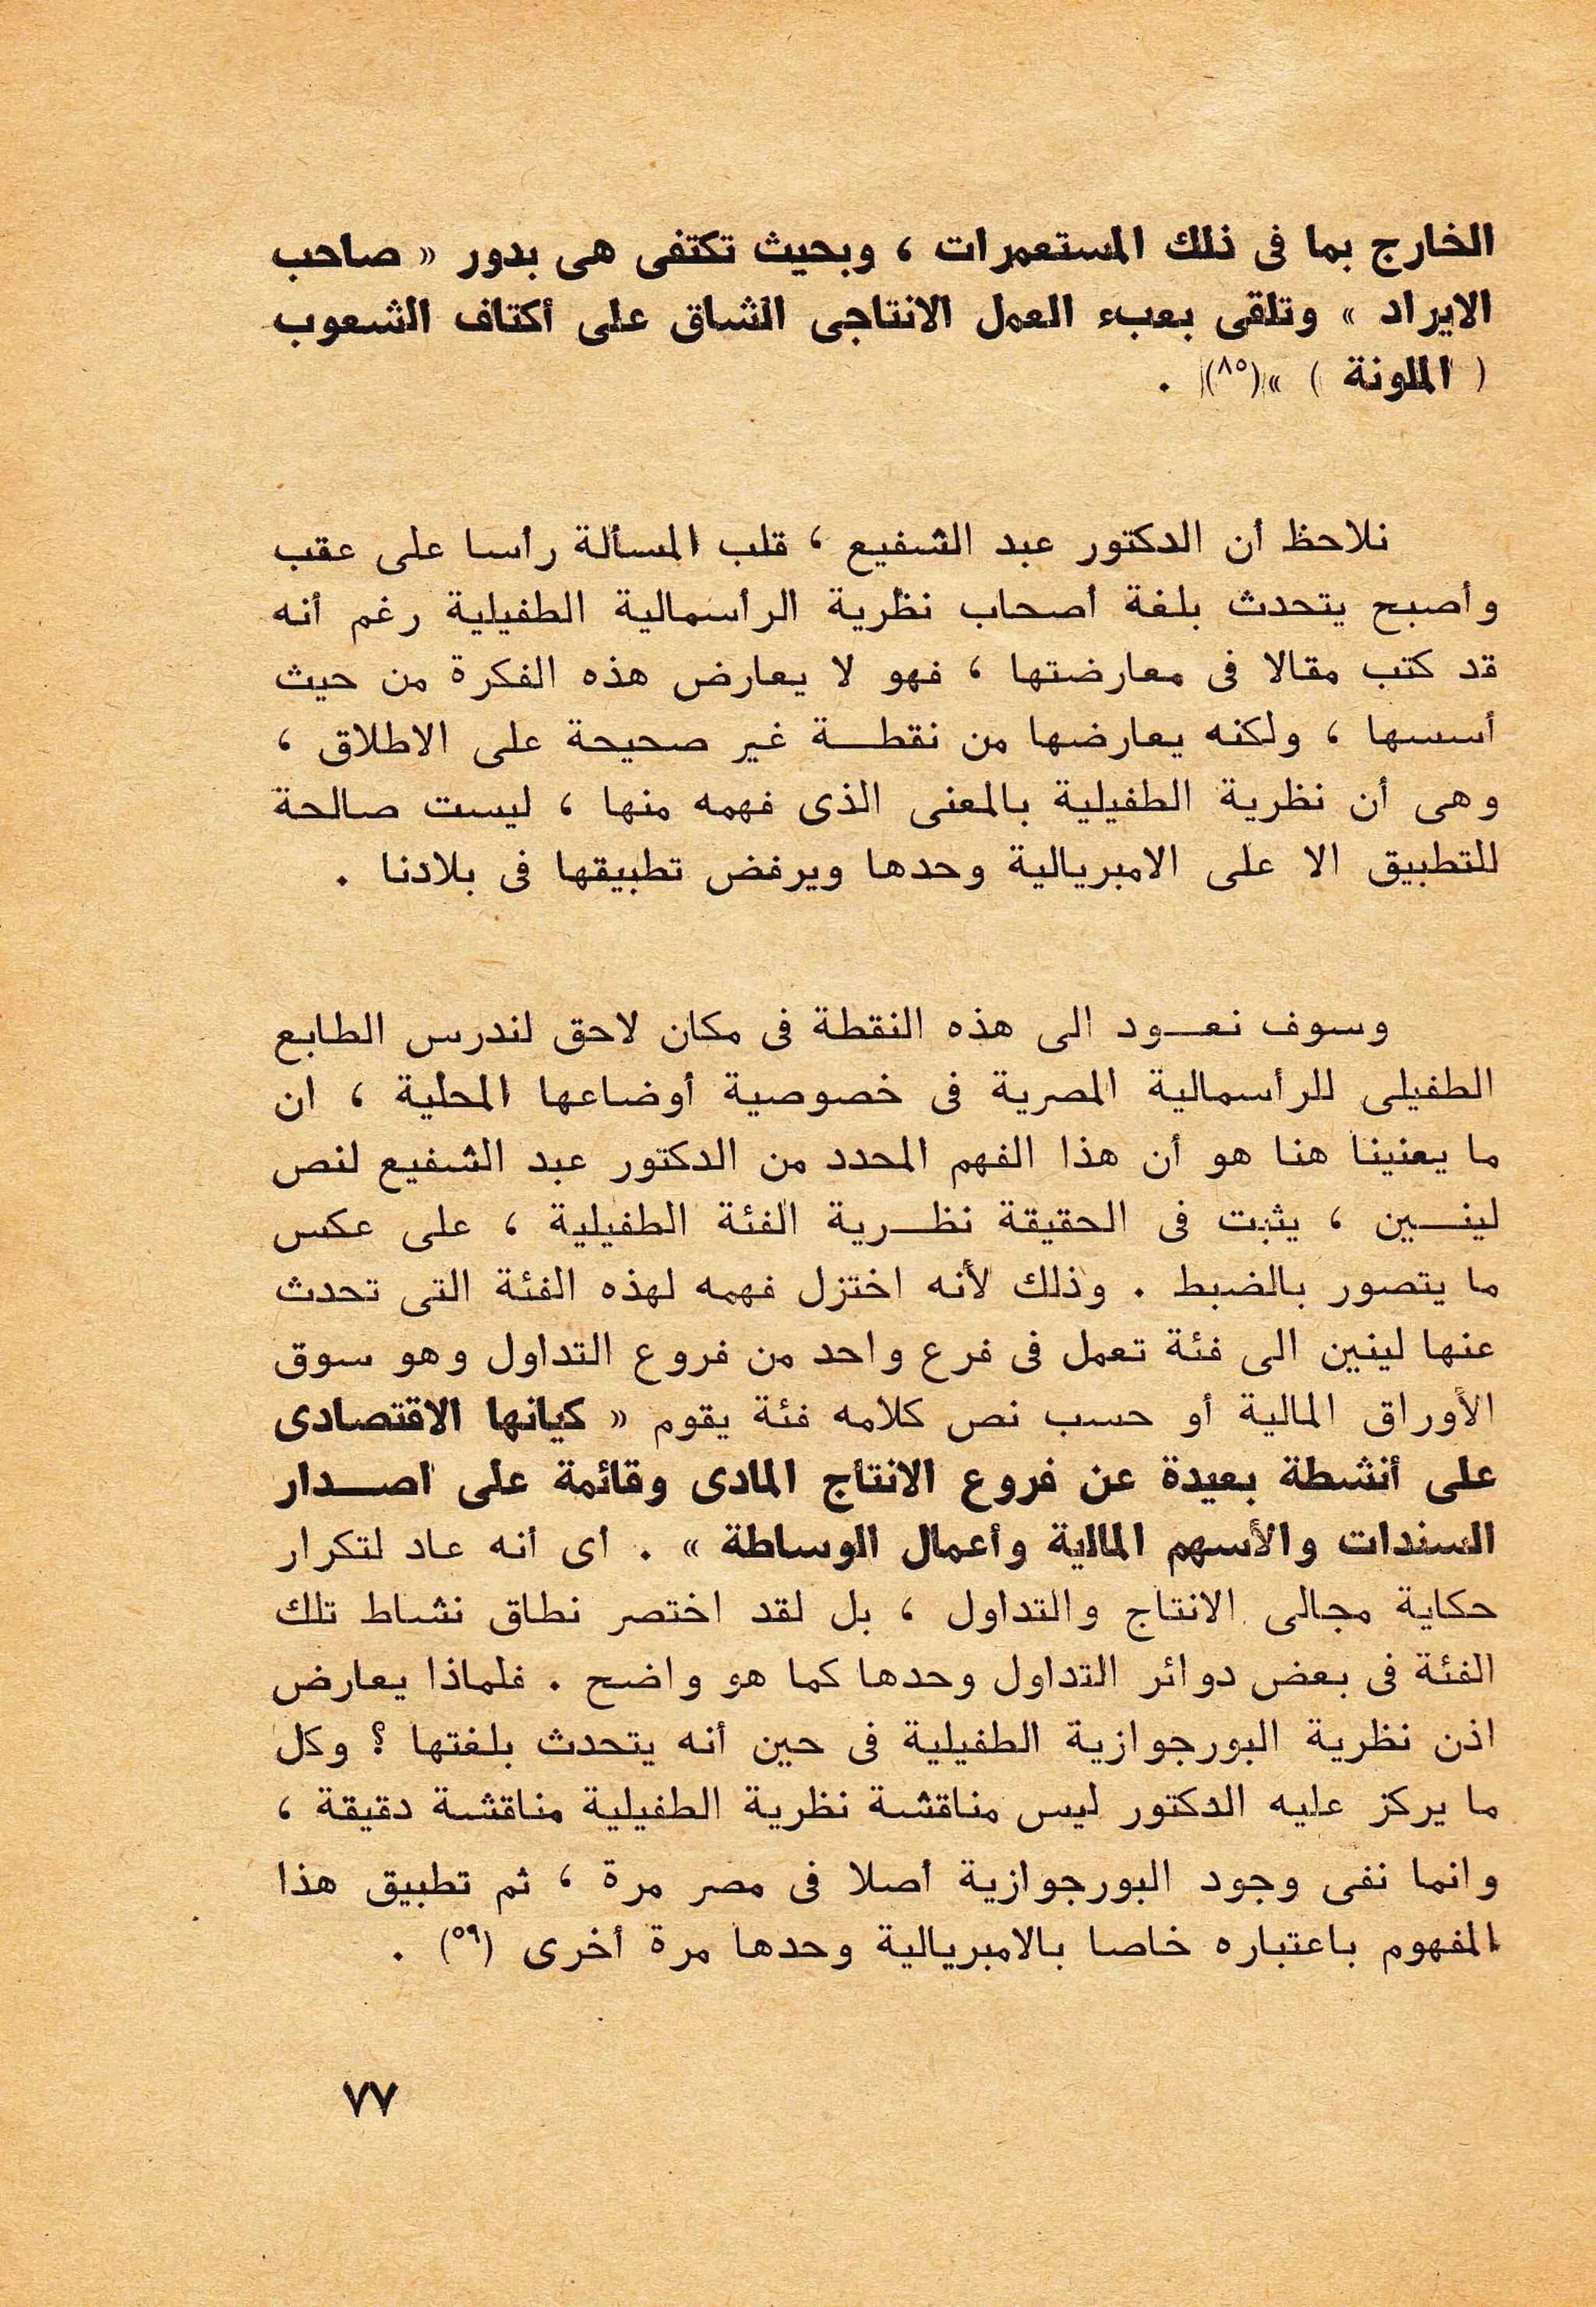 الخارج بما فى ذلك المستعمرات ، وبحيث تكتفى هى بدور « صاحب
الايراد » وتلقى بعبء العمل الانتاجى الشاق على أكتاف الشعوب
( الملونة ) »(٨٥) .
نلاحظ أن الدكتور عبد الشفيع ، قلب المسألة رأسا على عقب
وأصبح يتحدث بلغة أصحاب نظرية الرأسمالية الطفيلية رغم أنه
قد كتب مقالا فى معارضتها ، فهو لا يعارض هذه الفكرة من حيث
أسسها ، ولكنه يعارضها من نقطة غير صحيحة على الاطلاق ،
وهى أن نظرية الطفيلية بالمعنى الذى فهمه منها ، ليست صالحة
للتطبيق الا على الامبريالية وحدها ويرفض تطبيقها فى بلادنا .
وسوف نعود الى هذه النقطة فى مكان لاحق لندرس الطابع
الطفيلى للرأسمالية المصرية فى خصوصية أوضاعها المحلية ، ان
ما يعنينا هنا هو أن هذا الفهم المحدد من الدكتور عبد الشفيع لنص
لينين ، يثبت فى الحقيقة نظرية الفئة الطفيلية ، على عكس
ما يتصور بالضبط . وذلك لأنه اختزل فهمه لهذه الفئة التى تحدث
عنها لينين الى فئة تعمل فى فرع واحد من فروع التداول وهو سوق
الأوراق المالية أو حسب نص كلامه فئة يقوم « كيانها الاقتصادى
على أنشطة بعيدة عن فروع الانتاج المادى وقائمة على اصدار
السندات والأسهم المالية وأعمال الوساطة » . أى أنه عاد لتكرار
حكاية مجالى الانتاج والتداول ، بل لقد اختصر نطاق نشاط تلك
الفئة فى بعض دوائر التداول وحدها كما هو واضح . فلماذا يعارض
اذن نظرية البورجوازية الطفيلية فى حين أنه يتحدث بلغتها ؟ وكل
ما يركز عليه الدكتور ليس مناقشة نظرية الطفيلية مناقشة دقيقة ،
وانما نفى وجود البورجوازية أصلا فى مصر مرة ، ثم تطبيق هذا
المفهوم باعتباره خاصا بالامبريالية وحدها مرة أخرى (٥٩) .
٧٧